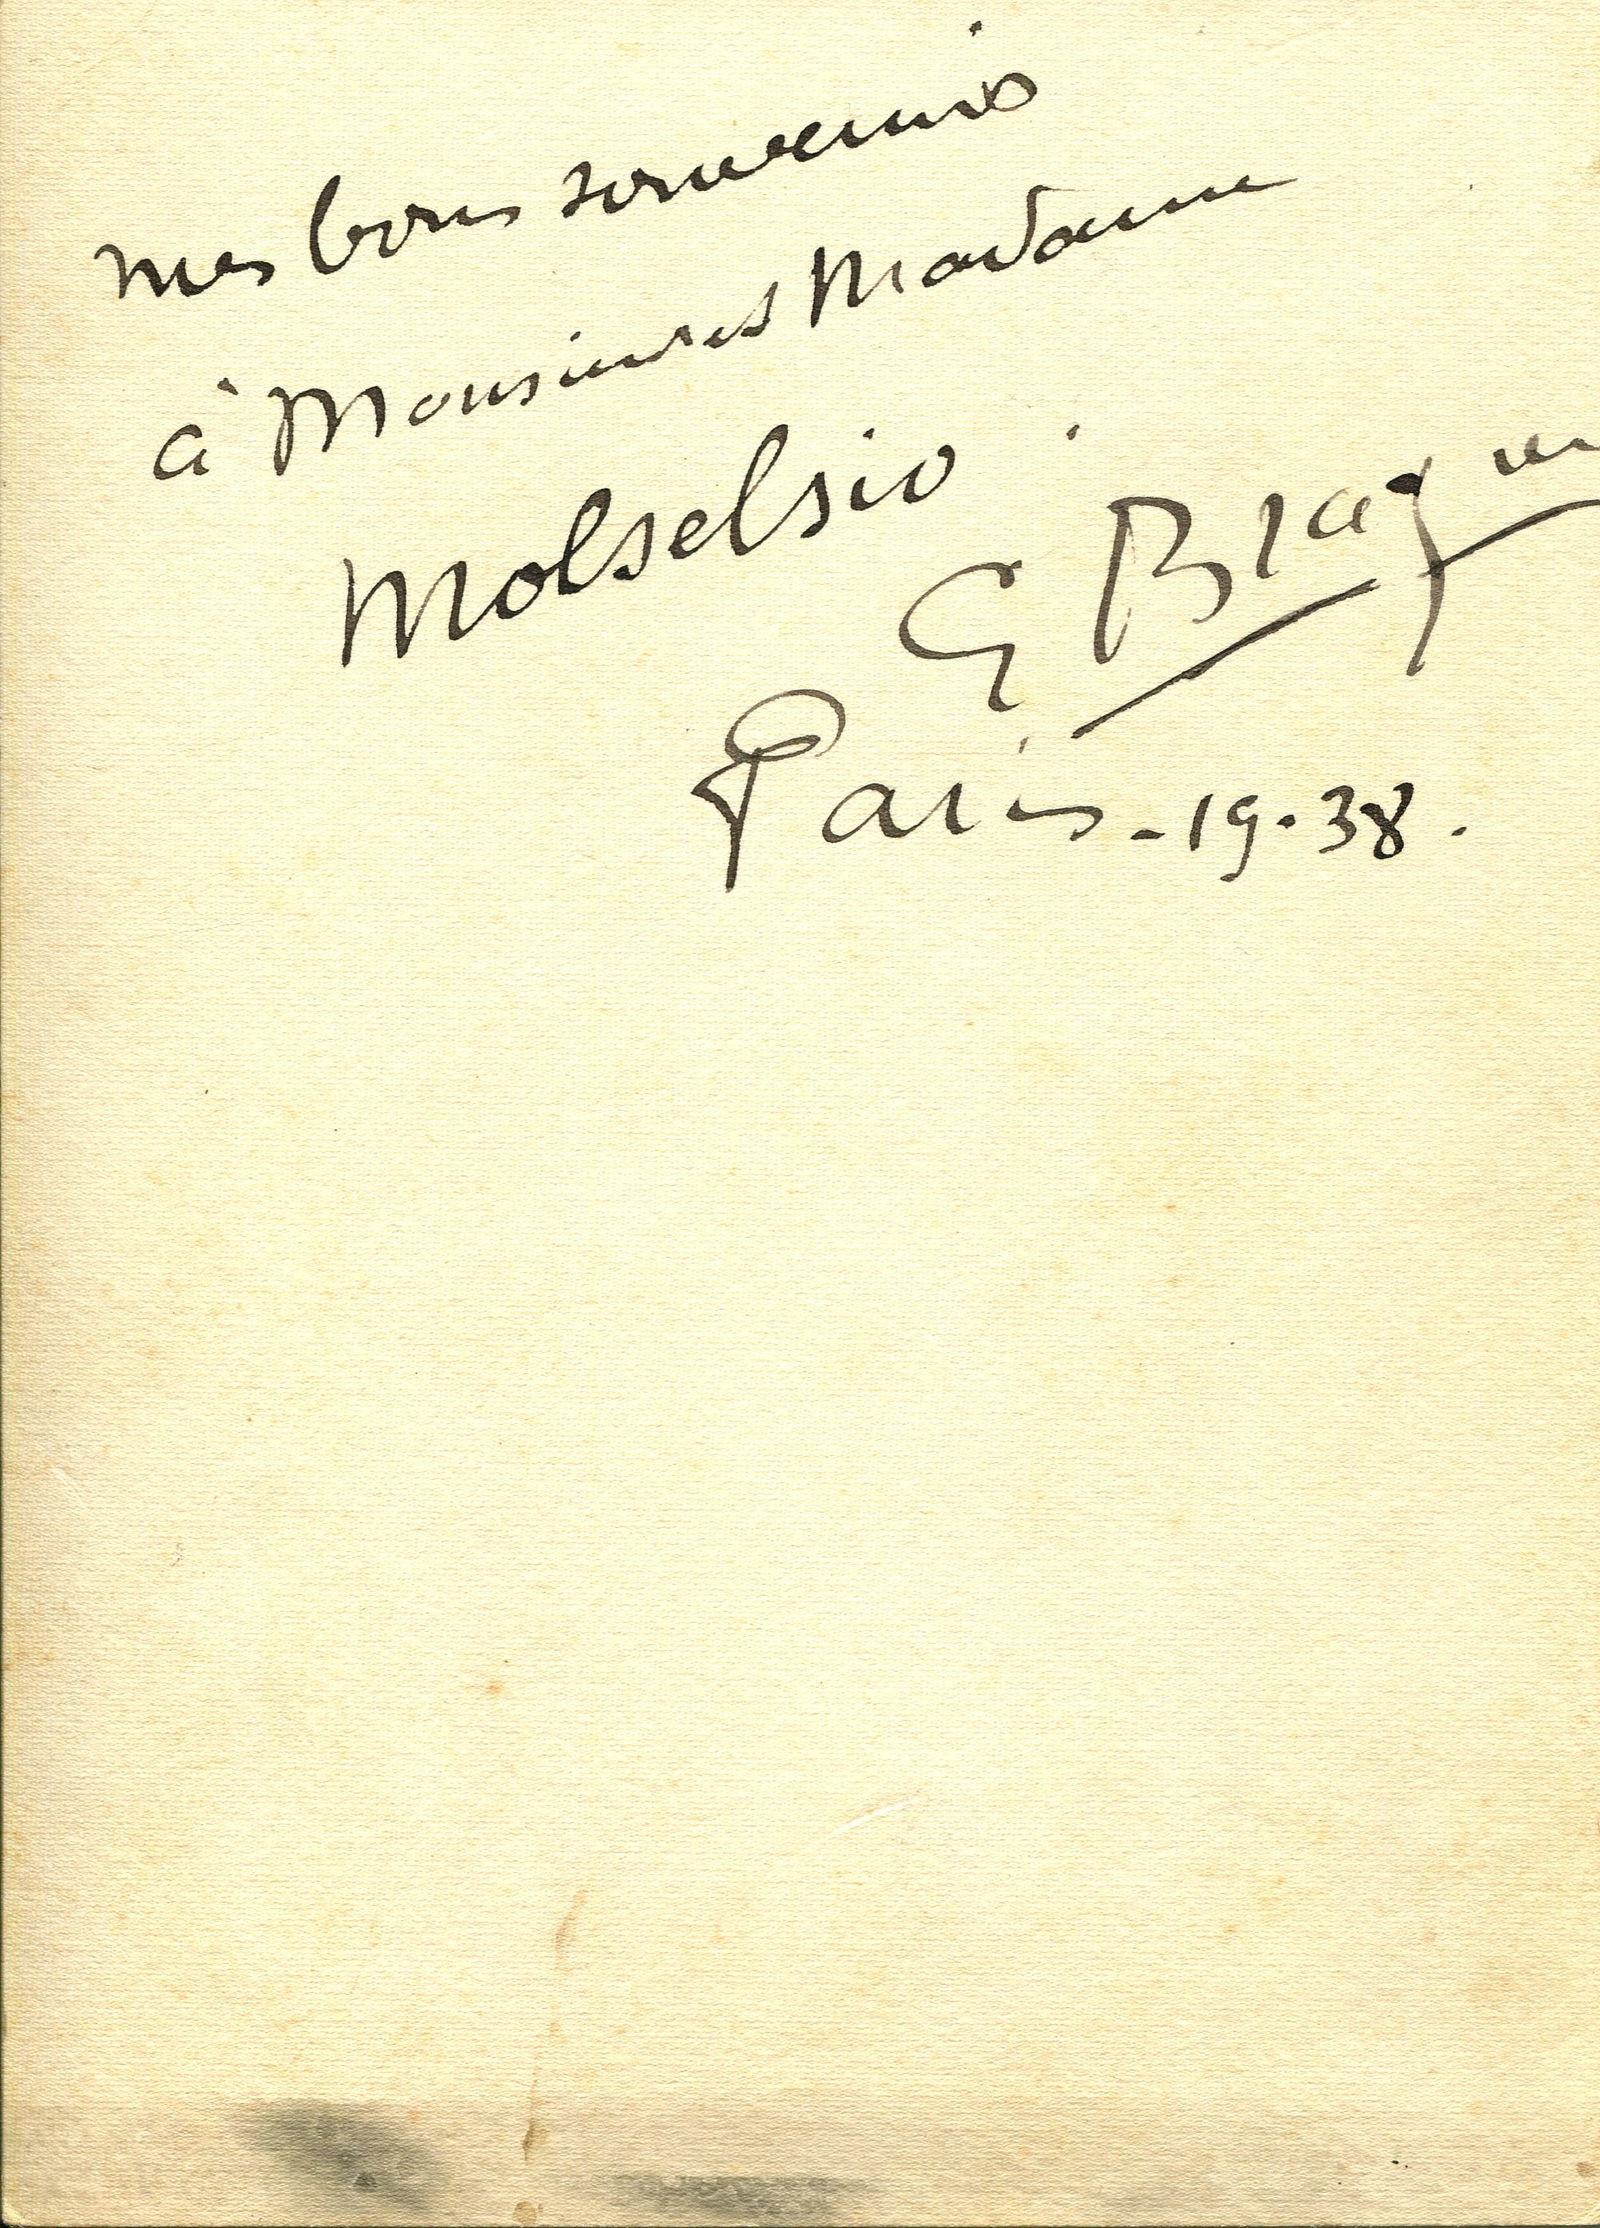 mes bons souvenirs
à Monsieur et Madame
Molselsio.
G Braque
Paris - 19.38.